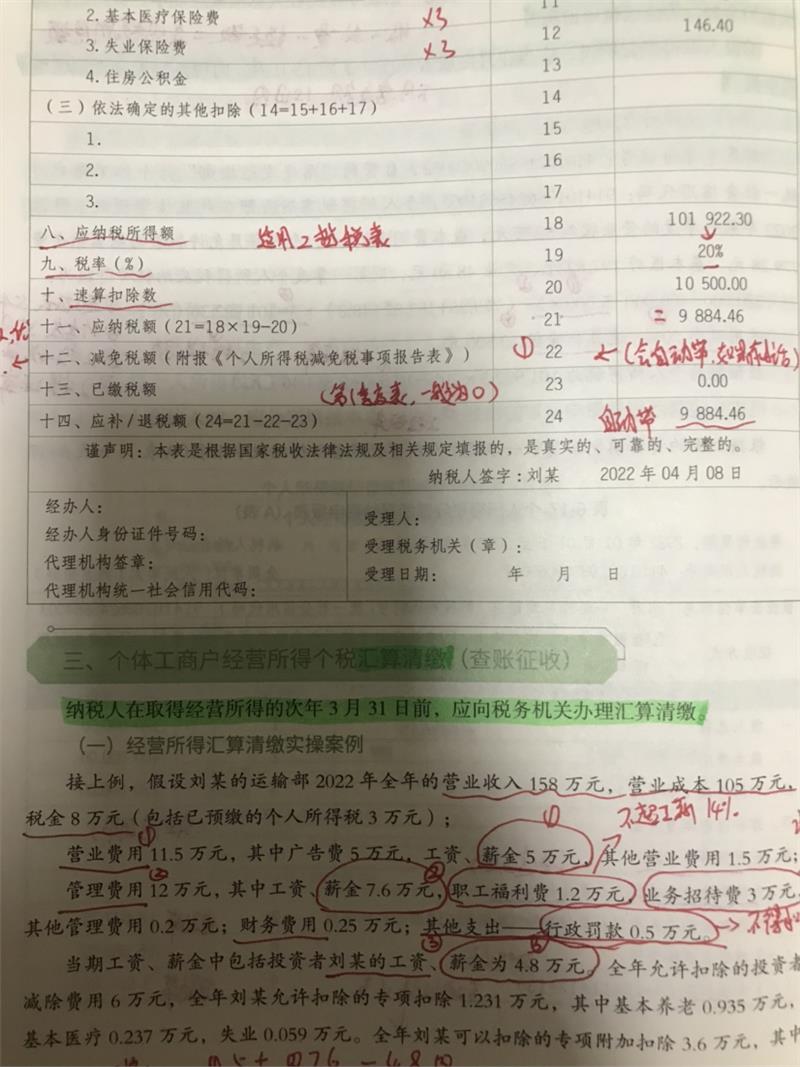 11
2.基本医疗保险费 ×3 12 146.40
3.失业保险费 ×3 13
4.住房公积金 14
(三)依法确定的其他扣除(14=15+16+17)
1. 15
2. 16
3. 17
八、应纳税所得额 适用二档税表 18 101 922.30
九、税率(%) 19 20%
十、速算扣除数 20 10 500.00
十一、应纳税额(21=18×19-20) 21 = 9 884.46
十二、减免税额(附报《个人所得税减免税事项报告表》) ① 22
十三、已缴税额 一般为0) 23 0.00
十四、应补/退税额(24=21-22-23) 24 自动带 9 884.46
谨声明:本表是根据国家税收法律法规及相关规定填报的,是真实的、可靠的、完整的。
纳税人签字:刘某 2022年04月08日
经办人:
经办人身份证件号码:
代理机构签章:
代理机构统一社会信用代码:
受理人:
受理税务机关(章):
受理日期: 年 月 日
三、个体工商户经营所得个税汇算清缴(查账征收)
纳税人在取得经营所得的次年3月31日前,应向税务机关办理汇算清缴。
(一)经营所得汇算清缴实操案例
接上例,假设刘某的运输部2022年全年的营业收入158万元,营业成本105万元,
税金8万元(包括已预缴的个人所得税3万元); 不超工薪14%
营业费用11.5万元,其中广告费5万元,工资、薪金5万元,其他营业费用1.5万元;
管理费用12万元,其中工资、薪金7.6万元,职工福利费1.2万元,业务招待费3万元,
其他管理费用0.2万元;财务费用0.25万元;其他支出——行政罚款0.5万元。
当期工资、薪金中包括投资者刘某的工资、薪金为4.8万元。全年允许扣除的投资者
减除费用6万元,全年刘某允许扣除的专项扣除1.231万元,其中基本养老0.935万元,
基本医疗0.237万元,失业0.059万元。全年刘某可以扣除的专项附加扣除3.6万元,其中